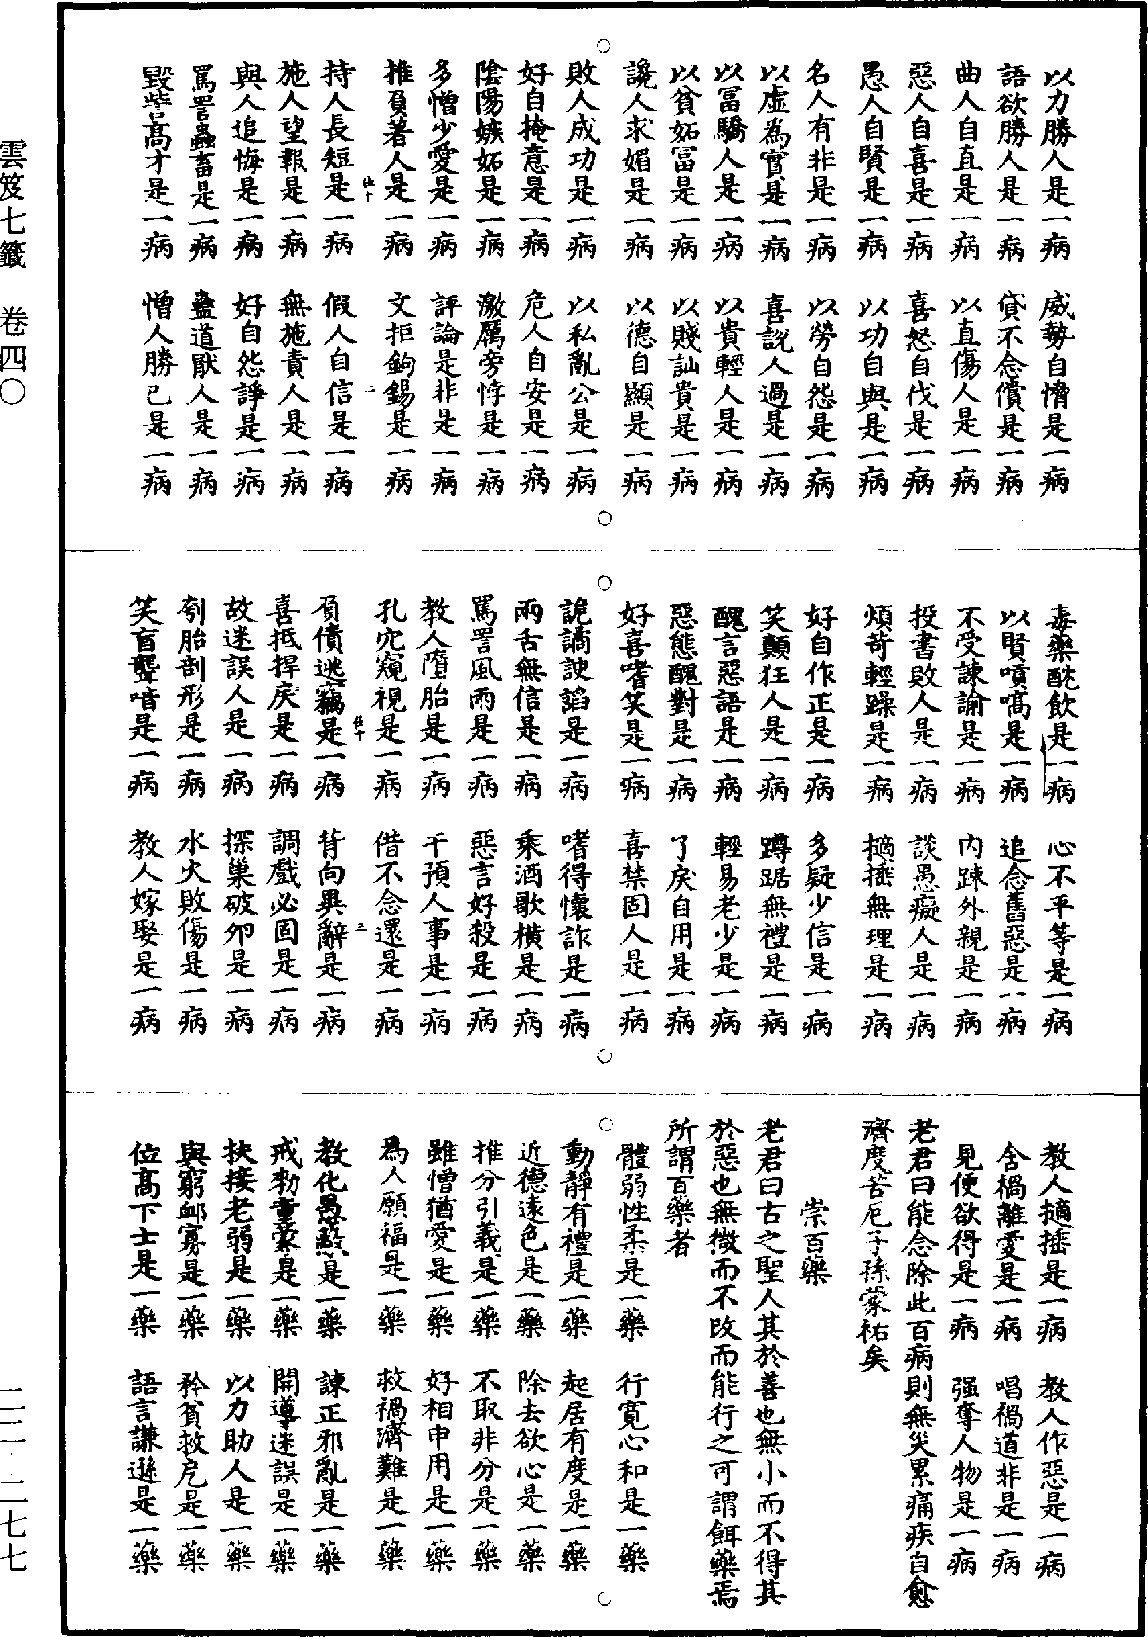 雲笈七籤　卷四〇
以力勝人是一病　威勢自憍是一病
語欲勝人是一病　貸不念償是一病
曲人自直是一病　以直傷人是一病
惡人自喜是一病　喜怒自伐是一病
愚人自賢是一病　以功自與是一病
名人有非是一病　以勞自怨是一病
以虛為實是一病　喜說人過是一病
以富驕人是一病　以貴輕人是一病
以貧妬富是一病　以賤訕貴是一病
讒人求媚是一病　以德自顯是一病
敗人成功是一病　以私亂公是一病
好自掩意是一病　危人自安是一病
陰陽嫉妬是一病　激厲旁悖是一病
多憎少愛是一病　評論是非是一病
推負著人是一病　文拒鉤錫是一病
持人長短是一病　假人自信是一病
施人望報是一病　無施責人是一病
與人追悔是一病　好自怨諍是一病
罵詈蟲畜是一病　蠱道厭人是一病
毀訾高才是一病　憎人勝己是一病
毒藥酖飲是一病　心不平等是一病
以賢嗊嗃是一病　追念舊惡是一病
不受諫諭是一病　內疎外親是一病
投書敗人是一病　談愚癡人是一病
煩苛輕躁是一病　擿捶無理是一病
好自作正是一病　多疑少信是一病
笑顛狂人是一病　蹲踞無禮是一病
醜言惡語是一病　輕易老少是一病
惡態醜對是一病　了戾自用是一病
好喜嗜笑是一病　喜禁固人是一病
詭譎諛諂是一病　嗜得懷詐是一病
兩舌無信是一病　乘酒歌橫是一病
罵詈風雨是一病　惡言好殺是一病
教人墮胎是一病　干預人事是一病
孔穴窺視是一病　借不念還是一病
負債逃竊是一病　背向異辭是一病
喜抵捍戾是一病　調戲必固是一病
故迷誤人是一病　探巢破卵是一病
刳胎剖形是一病　水火敗傷是一病
笑盲聾喑是一病　教人嫁娶是一病
教人擿捶是一病　教人作惡是一病
含禍離愛是一病　唱禍道非是一病
見便欲得是一病　強奪人物是一病
老君曰能念除此百病則無災累痛疾自愈
濟度苦厄子孫蒙祐矣
崇百藥
老君曰古之聖人其於善也無小而不得其
於惡也無微而不改而能行之可謂餌藥焉
所謂百藥者
體弱性柔是一藥　行寬心和是一藥
動靜有禮是一藥　起居有度是一藥
近德遠色是一藥　除去欲心是一藥
推分引義是一藥　不取非分是一藥
雖憎猶愛是一藥　好相申用是一藥
為人願福是一藥　救禍濟難是一藥
教化愚蔽是一藥　諫正邪亂是一藥
戒勑童蒙是一藥　開導迷誤是一藥
扶接老弱是一藥　以力助人是一藥
與窮卹寡是一藥　矜貧救厄是一藥
位高下士是一藥　語言謙遜是一藥
二二・二七七